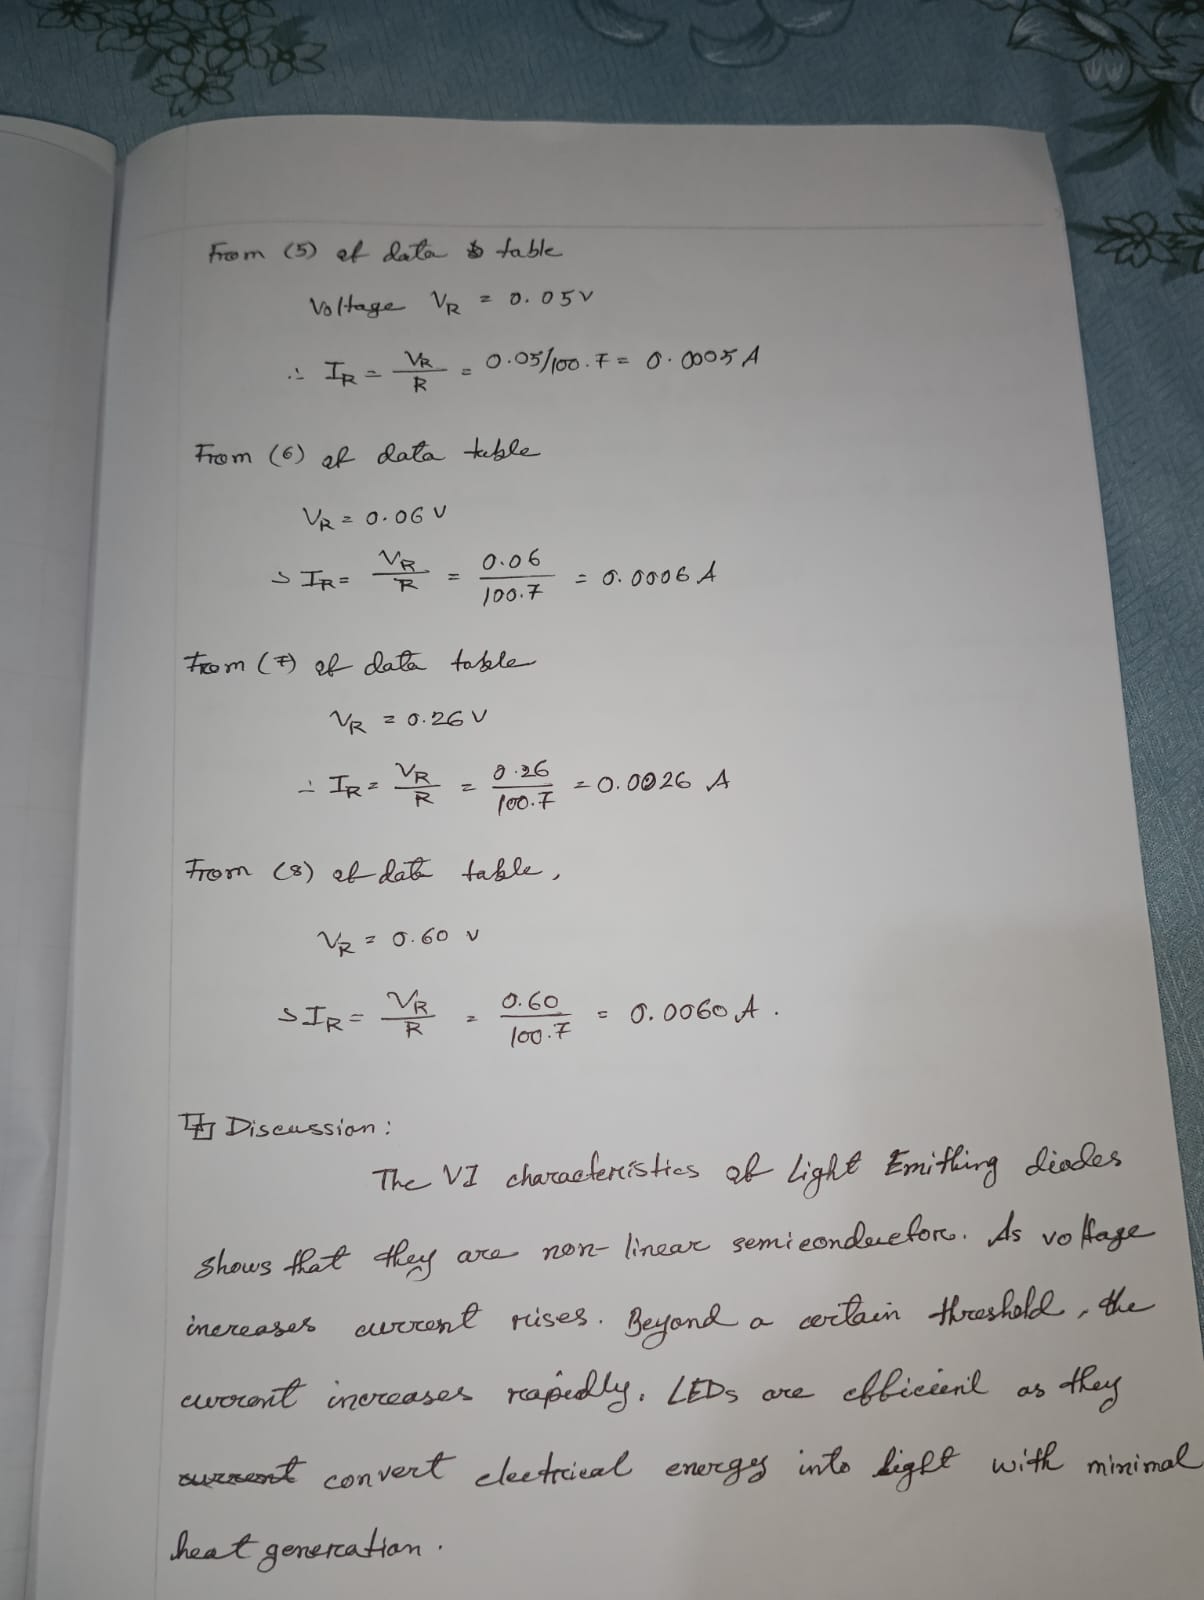 From (5) of data table
Voltage VR = 0.05V
∴ IR = VR/R = 0.05/100.7 = 0.0005 A
From (6) of data table
VR = 0.06 V
∴ IR = VR/R = 0.06/100.7 = 0.0006 A
From (7) of data table
VR = 0.26 V
∴ IR = VR/R = 0.26/100.7 = 0.0026 A
From (8) of data table,
VR = 0.60 V
∴ IR = VR/R = 0.60/100.7 = 0.0060 A.
Discussion:
The VI characteristics of Light Emitting diodes
shows that they are non-linear semiconductor. As voltage
increases current rises. Beyond a certain threshold, the
current increases rapidly. LEDs are efficient as they
current convert electrical energy into light with minimal
heat generation.